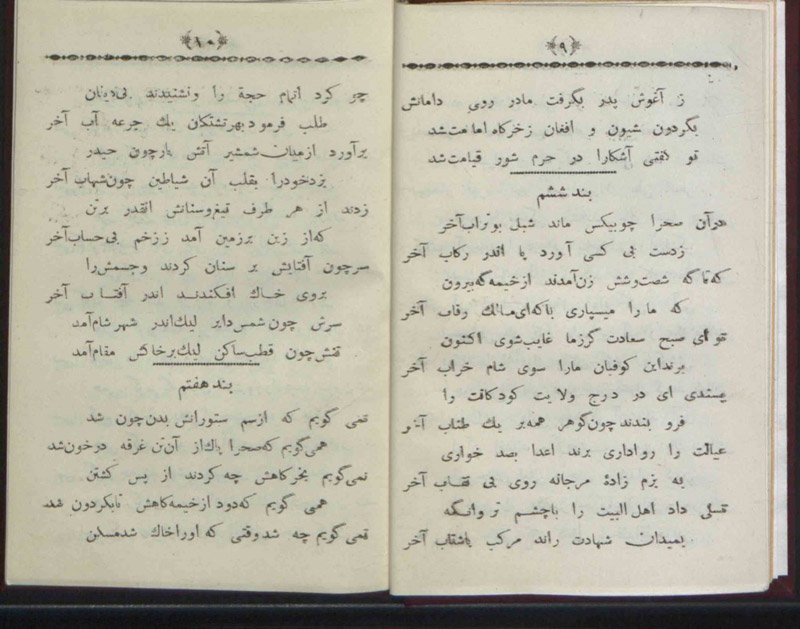 ﴿۹﴾
ز آغوش پدر بگرفت مادر روی دامانش
بگردون شیون و افغان زخرکاه امامت شد
تو گفتی آشکارا در حرم شور قیامت شد
بند ششم
در آن صحرا چوبیکس ماند شبل بوتراب آخر
زدست بی کسی آورد پا اندر رکاب آخر
که ناگه شصت وشش زن آمدند ازخیمه گه بیرون
که ما را میسپاری باکه ای مالک رقاب آخر
تو ای صبح سعادت گرزما غایب شوی اکنون
برنداین کوفیان مارا سوی شام خراب آخر
پسندی ای در درج ولایت کودکانت را
فرو بندند چون گوهر همه بر یك طناب آخر
عیالت را رواداری برند اعدا بصد خواری
به بزم زادهٔ مرجانه روی بی نقاب آخر
تسلی داد اهل البیت را باچشم تر وانگه
بمیدان شهادت راند مرکب باشتاب آخر
﴿۱۰﴾
چو کرد اتمام حجة را ونشنیدند بی دینان
طلب فرمود بهر تشنگان یك جرعه آب آخر
برآورد ازمیان شمشیر آتش بار چون حیدر
بزد خودرا بقلب آن شیاطین چون شهاب آخر
زدند از هر طرف تیغ وسنانش انقدر برتن
که از زین برزمین آمد ززخم بی حساب آخر
سرچون آفتابش بر سنان کردند وجسمش را
بروی خاك افکندند اندر آفتاب آخر
سرش چون شمس دایر لیك اندر شهر شام آمد
تنش چون قطب ساکن لیك بر خاکش مقام آمد
بند هفتم
نمی گویم که ازسم ستورانش بدن چون شد
همی گویم که صحرا پاك از آن تن غرقه درخون شد
نمی گویم بخرکاهش چه کردند از پس کشتن
همی گویم که دود ازخیمه کاهش تابکردون شد
نمی گویم چه شد وقتی که اوراخاك شد مسکن